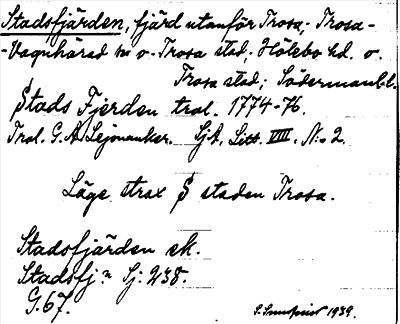 Stadsfjärden, fjärd utanför Trosa; Trosa-
-Vagnhärad sn o. Trosa stad; Hölebo hd. o.
Trosa stad; Södermanl. l.
Stads Fjerden tral. 1774-76.
Tral. G. A. Lejonanker. SjA, Litt. VIII. N:o 2.
Läge strax S staden Trosa.
Stadsfjärden ek.
Stadsfj:n Sj. 238.
G. 67.
1939.